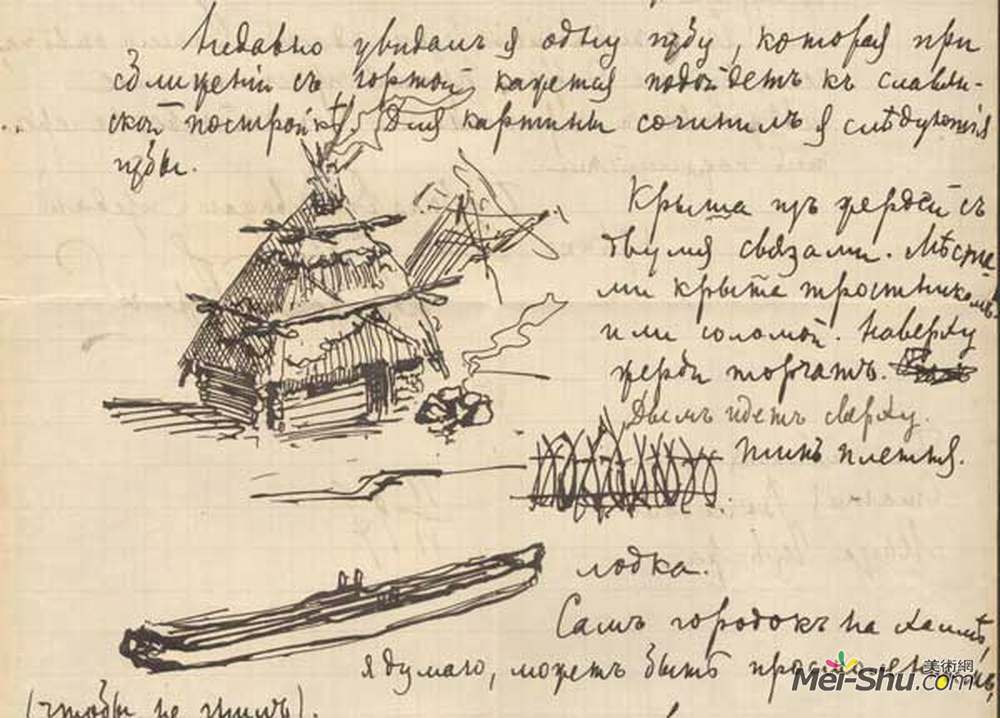 Недавно увидалъ я одну избу, которая при
сближеніи съ юртой кажется подойдетъ къ славян-
ской постройкѣ. Для картины сочинилъ я слѣдующія
избы.
Крыша изъ жердей съ
двумя связами. Мѣста-
ми крыта тростникомъ
или соломой. Наверху
жерди торчатъ.
Дымъ идетъ сверху.
тинъ плетня.
лодка.
Самъ городокъ на холмѣ,
я думаю, можетъ быть
(чтобы не
美術網
Mei-Shu.com